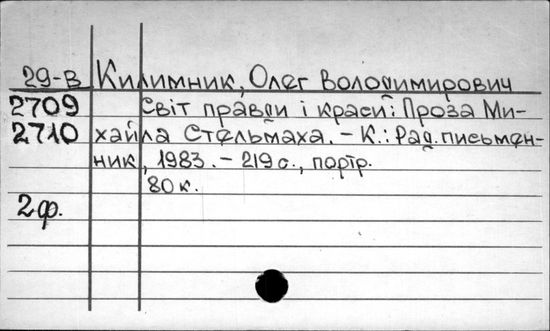 29-В Килимник, Олег Володимирович
2709 Світ правди і краси: Проза Ми-
2710 хайла Стельмаха. – К.: Рад. письмен-
ник, 1983. – 219 с., портр.
80 к.
2ф.